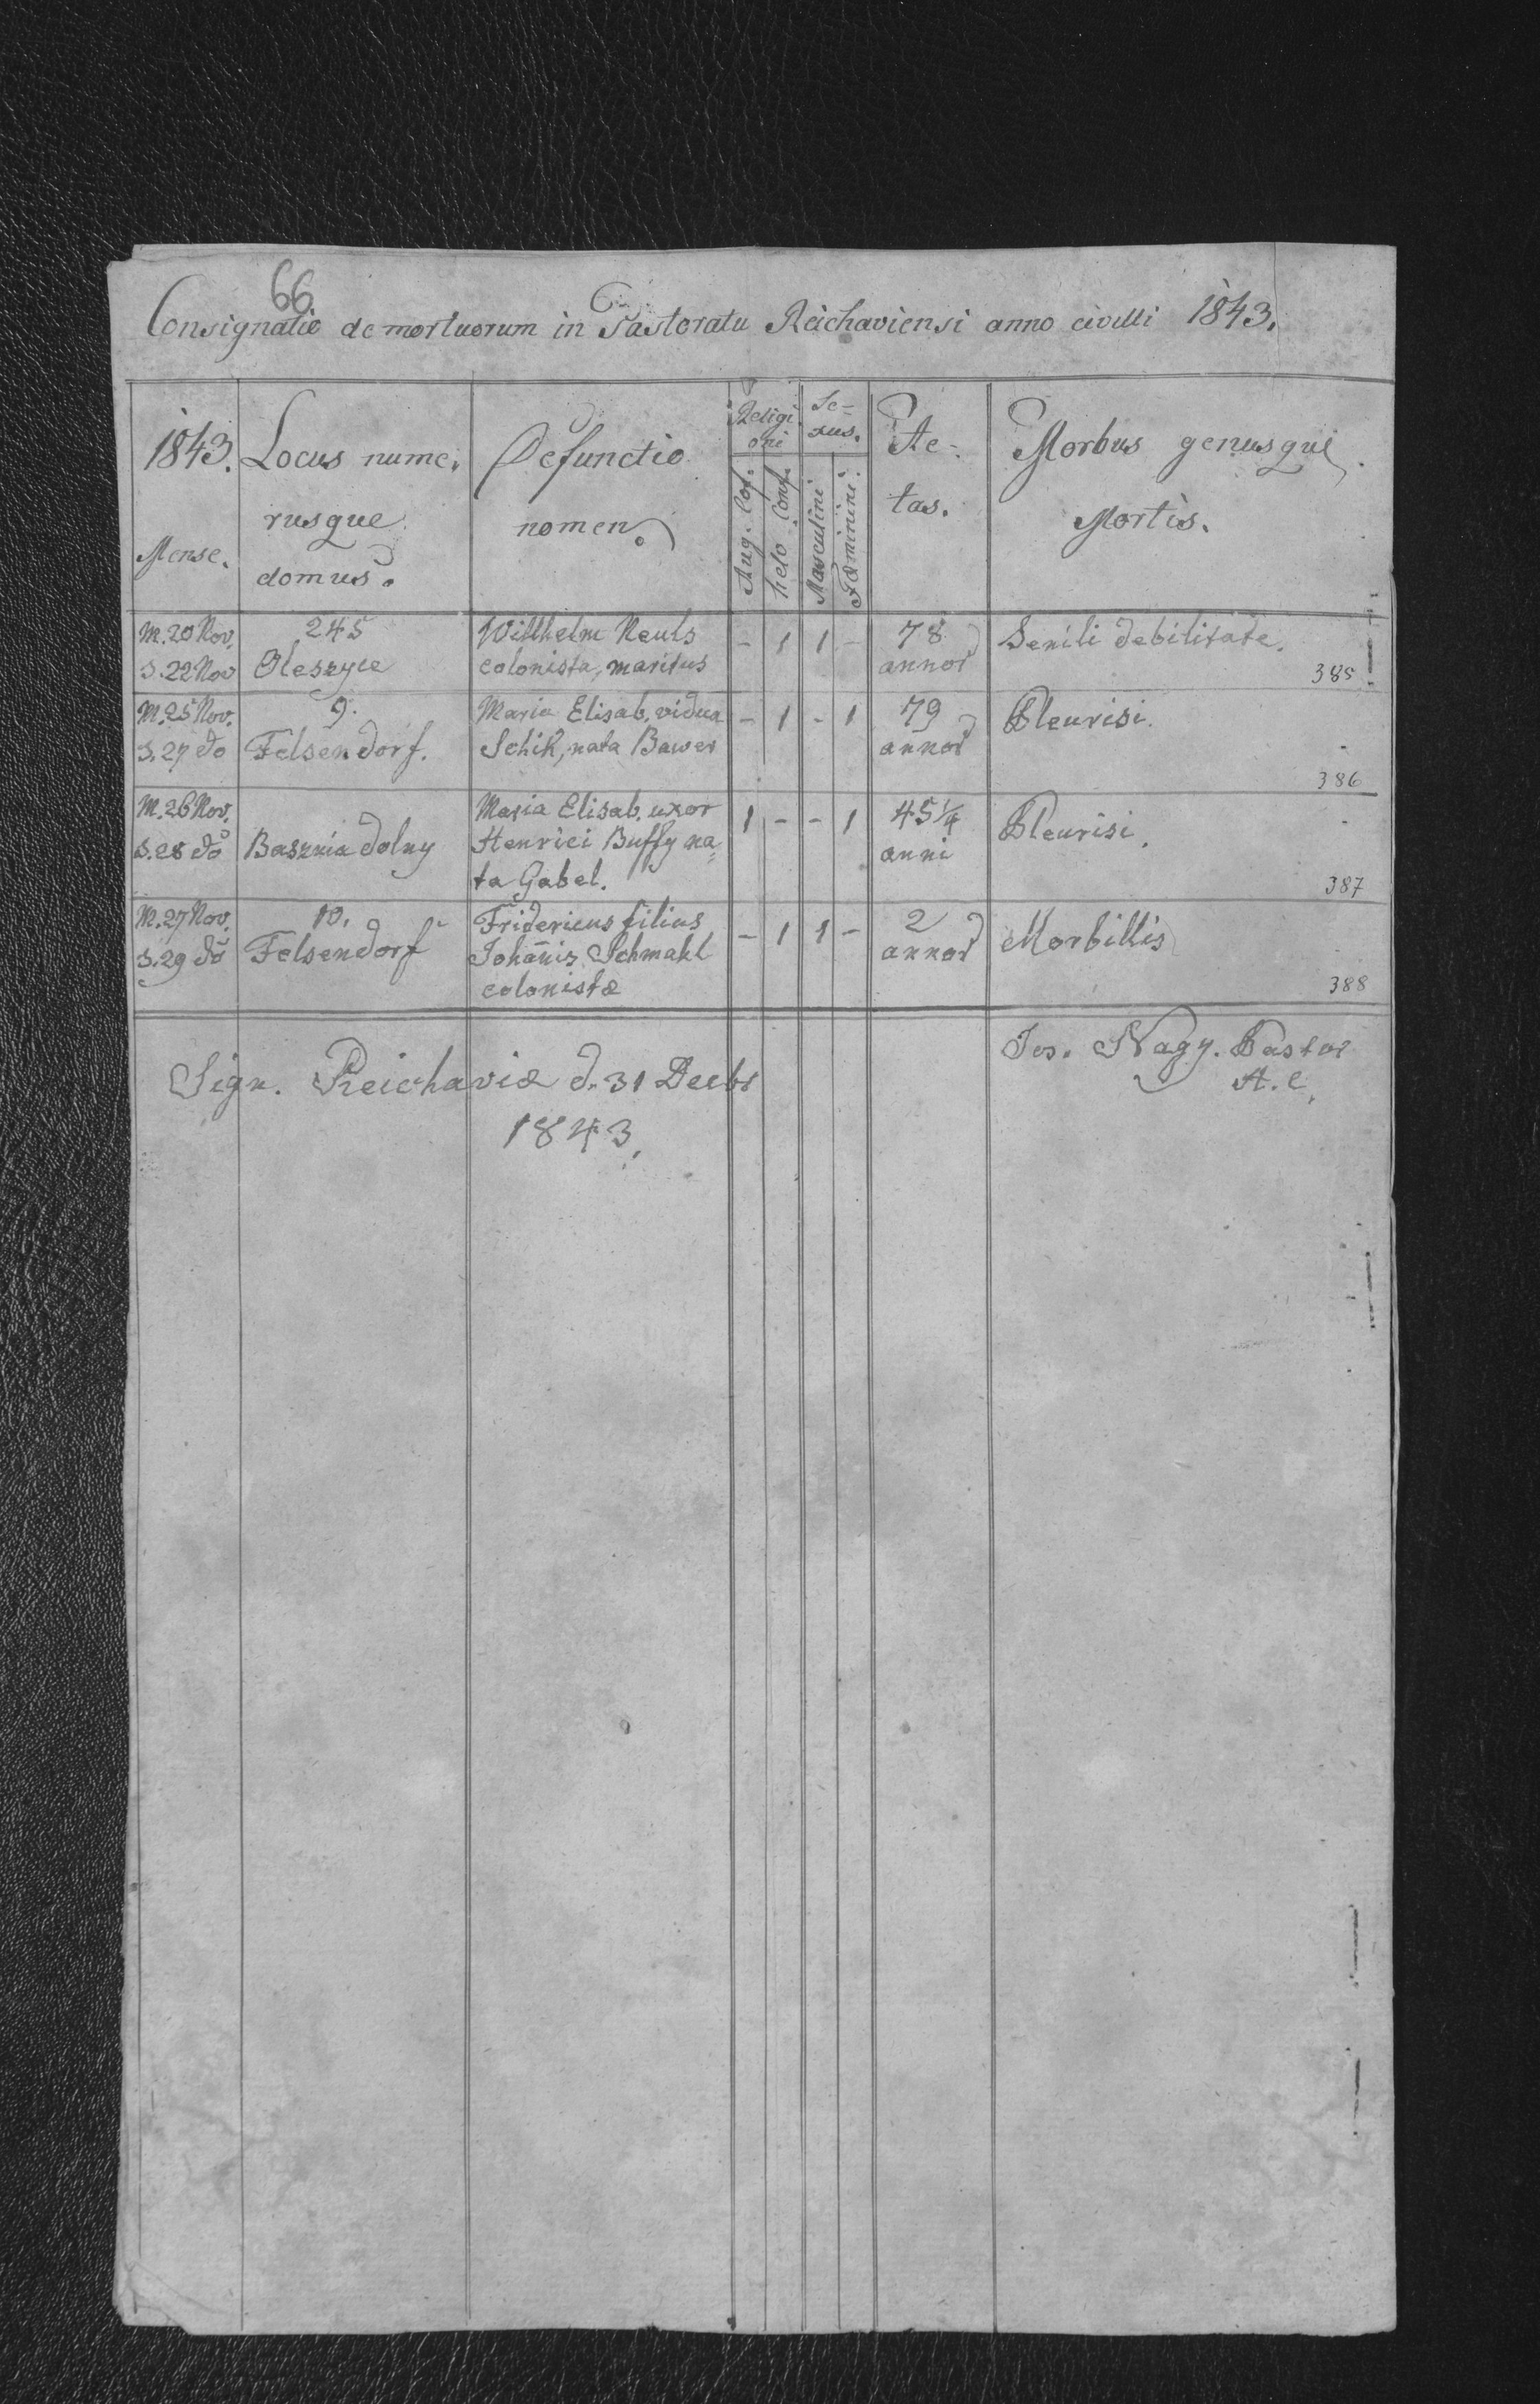 66.
Consignatio de mortuorum in Pastoratu Reichaviensi anno civilli 1843.
1843.
Mense.
Locus nume.
rusque
domus.
Defunctio
nomen.
Religi
oni
Aug. Cof.
helv. Conf.
Se-
xus.
Masculini
Fœminini.
Ae-
tas.
Morbus genusque
Mortis.
M. 20 Nov.
S. 22 Nov
245
Oleszyce
Willhelm Neuls
colonista, maritus
- 1 1 -
78
annor
Senili debilitate.
385
M. 25 Nov.
S. 27 do
9.
Felsendorf.
Maria Elisab. vidua
Schik, nata Bawer
- 1 - 1
79
annor
Pleurisi.
386
M. 26 Nov.
S. 28 do
Basznia dolny
Maria Elisab. uxor
Henrici Buffy na=
ta Gabel.
1 - - 1
45 1/4
anni
Pleurisi.
387
M. 27 Nov.
S. 29 do
10.
Felsendorf
Fridericus filius
Johanis Schmahl
colonistæ
- 1 1 -
2
annor
Morbillis
388
Sign. Reichaviæ d. 31 Decbr
1843.
Jos. Nagy. Pastor
A. C.